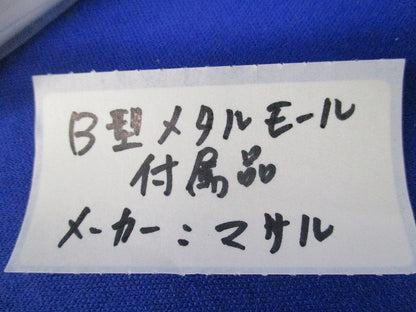 B型メタルモール
付属品
メーカー:マサル